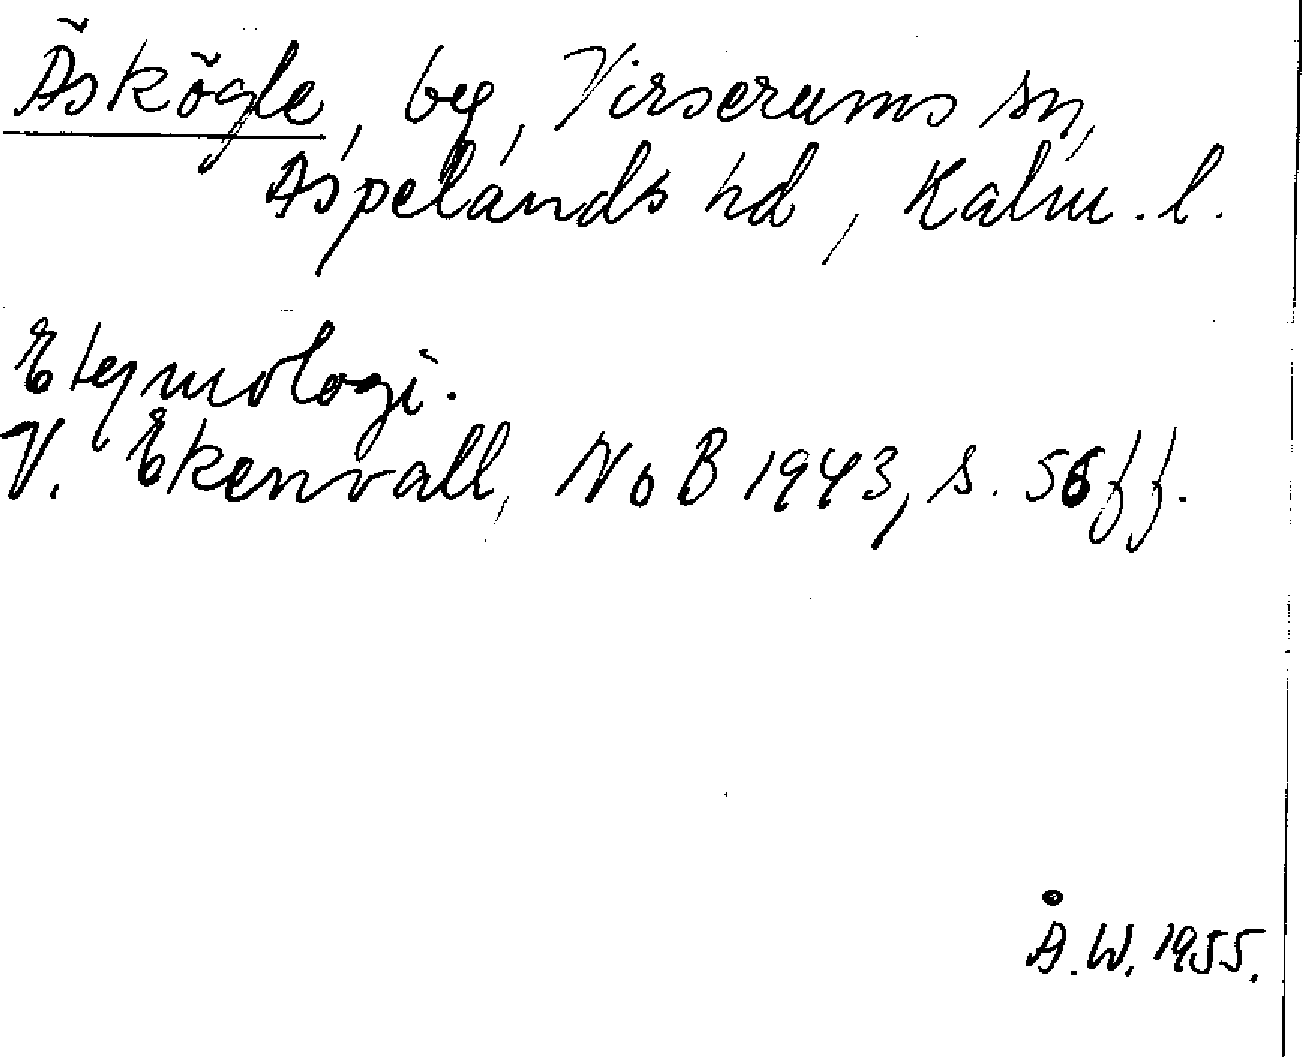 Äskögle, by, Virserums sn,
Aspelands hd, Kalm. l.
Etymologi.
V. Ekenvall, NoB 1943, s. 56 ff.
Å.W. 1955.